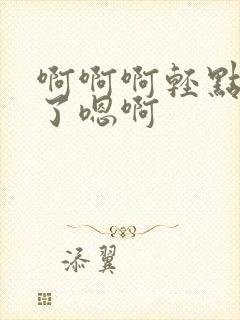 啊啊啊轻點
了嗯啊
添翼